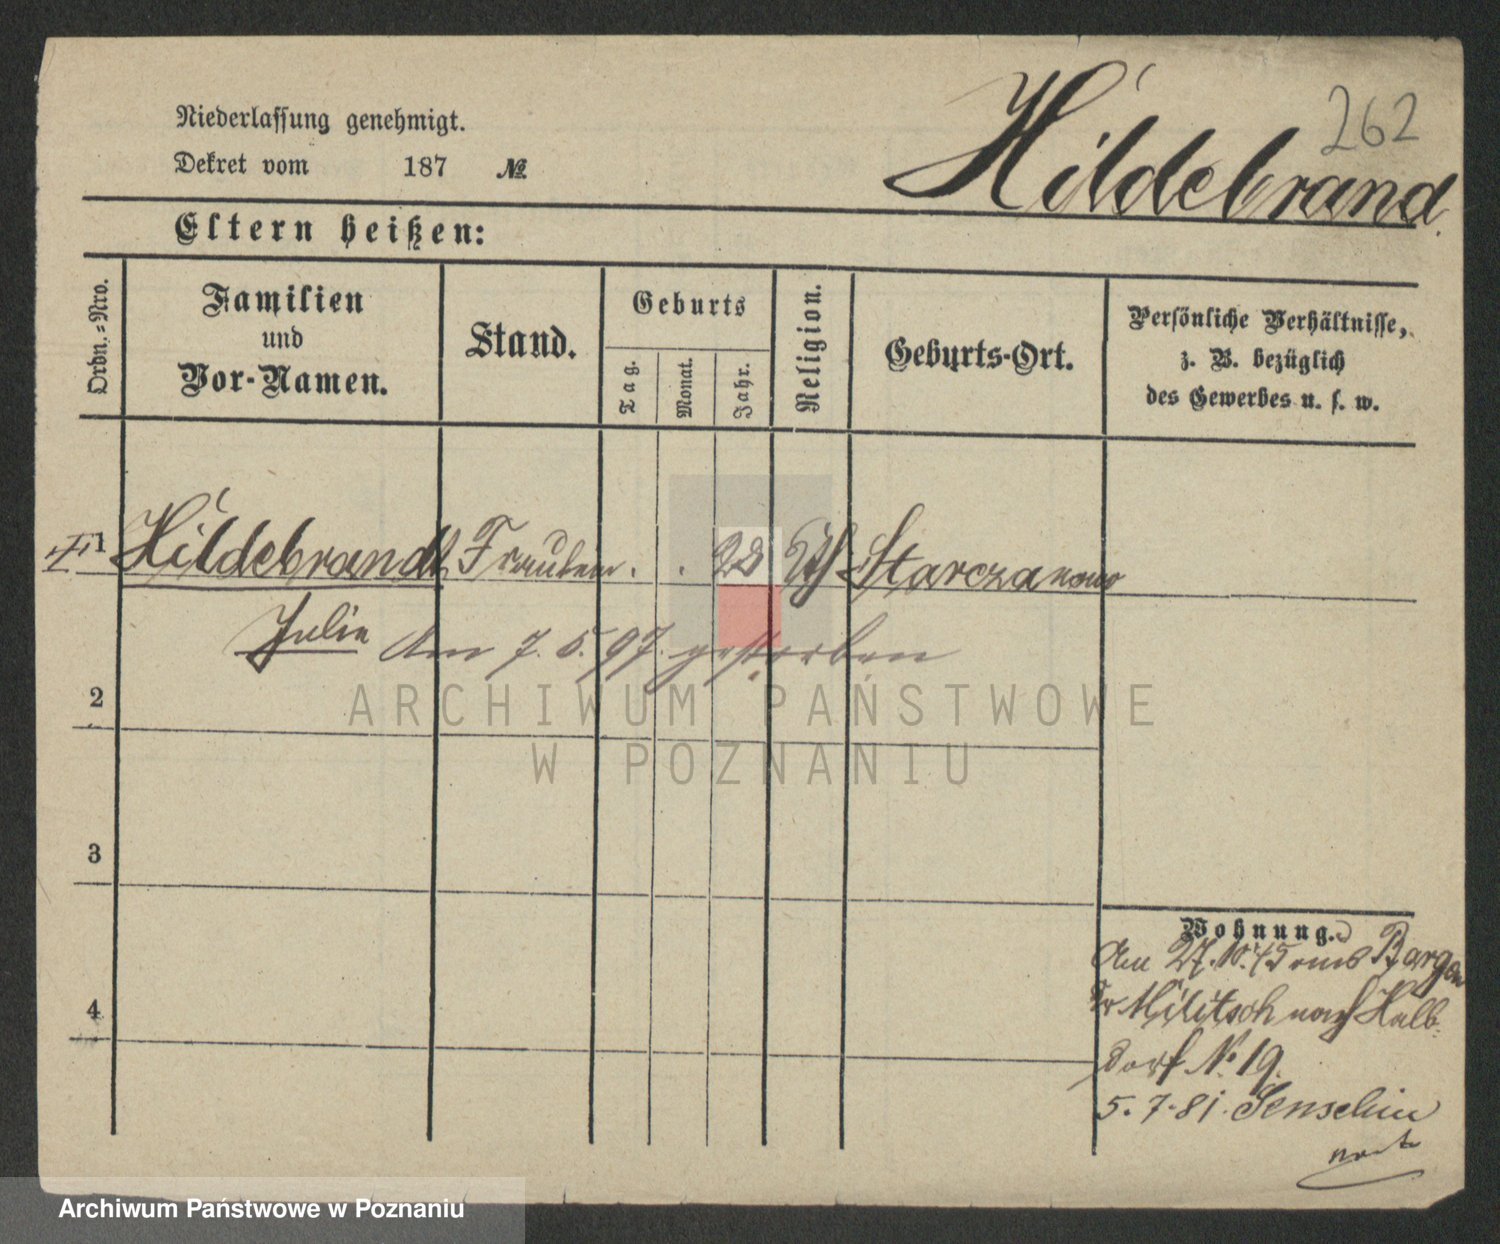 262
Hildebrand.
Niederlassung genehmigt.
Dekret vom 187 №
Eltern heißen:
Ordn.=Nro.
Familien
und
Vor-Namen.
Stand.
Geburts
Tag.
Monat.
Jahr.
Religion.
Geburts-Ort.
Persönliche Verhältnisse,
z. B. bezüglich
des Gewerbes u. s. w.
1 Hildebrandt Fräulein . . Starczanowo
Julie Am 7. 5. 97. gestorben
2
ARCHIWUM PAŃSTWOWE
W POZNANIU
3
4
Wohnung.
Am 27. 10. 75 aus Bargen
Kr Militsch nach Halb
dorf No 19.
5.7.81.
Archiwum Państwowe w Poznaniu